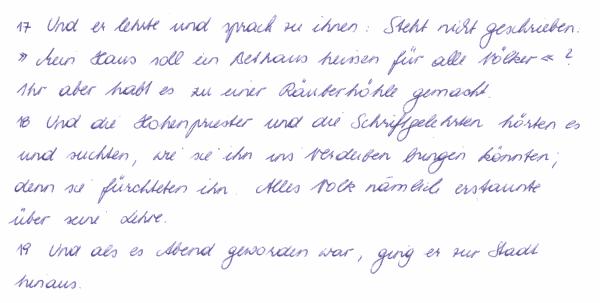 17 Und er lehrte und sprach zu ihnen: Steht nicht geschrieben:
»Mein Haus soll ein Bethaus heissen für alle Völker«?
Ihr aber habt es zu einer Räuberhöhle gemacht.
18 Und die Hohenpriester und die Schriftgelehrten hörten es
und suchten, wie sie ihn ins Verderben bringen könnten;
denn sie fürchteten ihn. Alles Volk nämlich erstaunte
über seine Lehre.
19 Und als es Abend geworden war, ging er zur Stadt
hinaus.